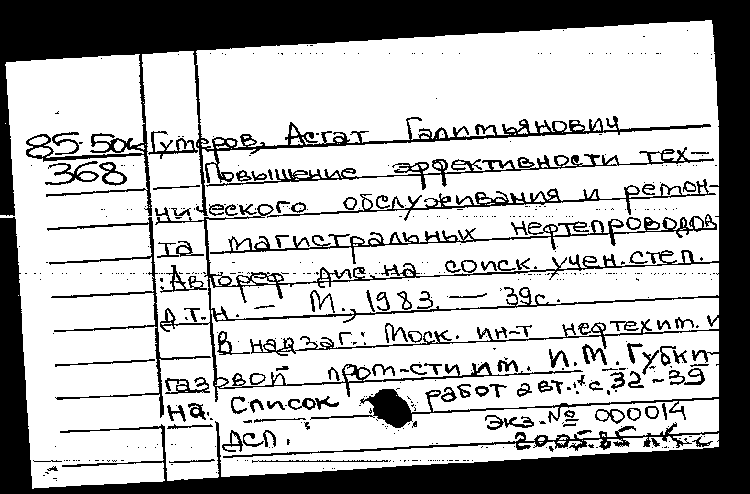 85-50к Гумеров, Асгат Галимьянович
368 Повышение эффективности тех=
нического обслуживания и ремон-
та магистральных нефтепроводов
: Автореф. дис. на соиск. учен. степ.
д.т.н. — М., 1983. — 39с.
В надзаг.: Моск. ин-т нефтехим. и
газовой пром-сти им. И.М. Губки-
на. Список работ авт.: с. 32-39
экз. № 000014
ДСП. 20.05.85